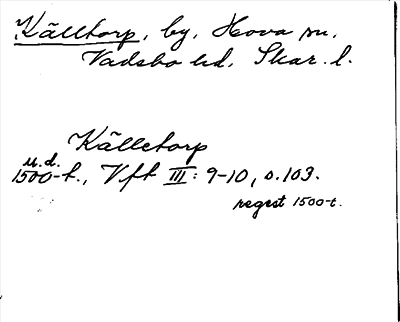 Källtorp, by, Hova sn,
Vadsbo hd, Skar. l.
Källetorp
u.d.
1500-t., Vft III: 9-10, s.103.
regest 1500-t.